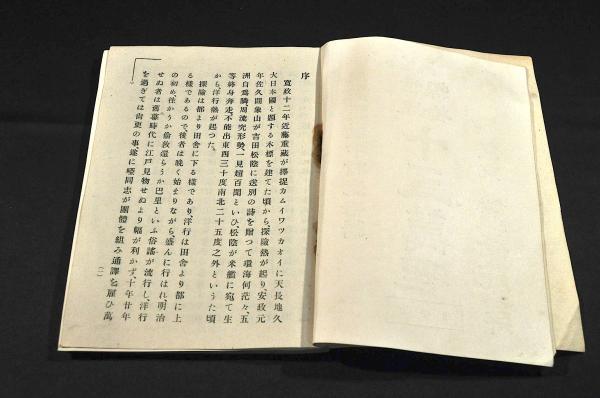 序
寛政十二年近藤重蔵が擇捉カムイワツカオイに天長地久
大日本國と題する木標を建てた頃から、探險熱が起り、安政元
年佐久間象山が吉田松陰に送別の詩を贈つて環海何茫々、五
洲自爲隣、周流究形勢、一見超百聞といひ、松陰が米艦に宛て生
等終身奔走、不能出東西三十度南北二十五度之外というた頃
から、洋行熱が起つた。
探險は都より田舍に下る樣であり、洋行は田舍より都に上
る樣であるので、後者は晩く始まりながら、盛んに行はれ、明治
の初め、往かうか倫敦還らうか巴里といふ俗謠が流行し、洋行
せぬ者は舊幕時代に江戸見物せぬより幅が利かず、十年廿年
を過ぎては尚更の事、遂に啞同志が團體を組み通譯を雇ひ萬
(一)